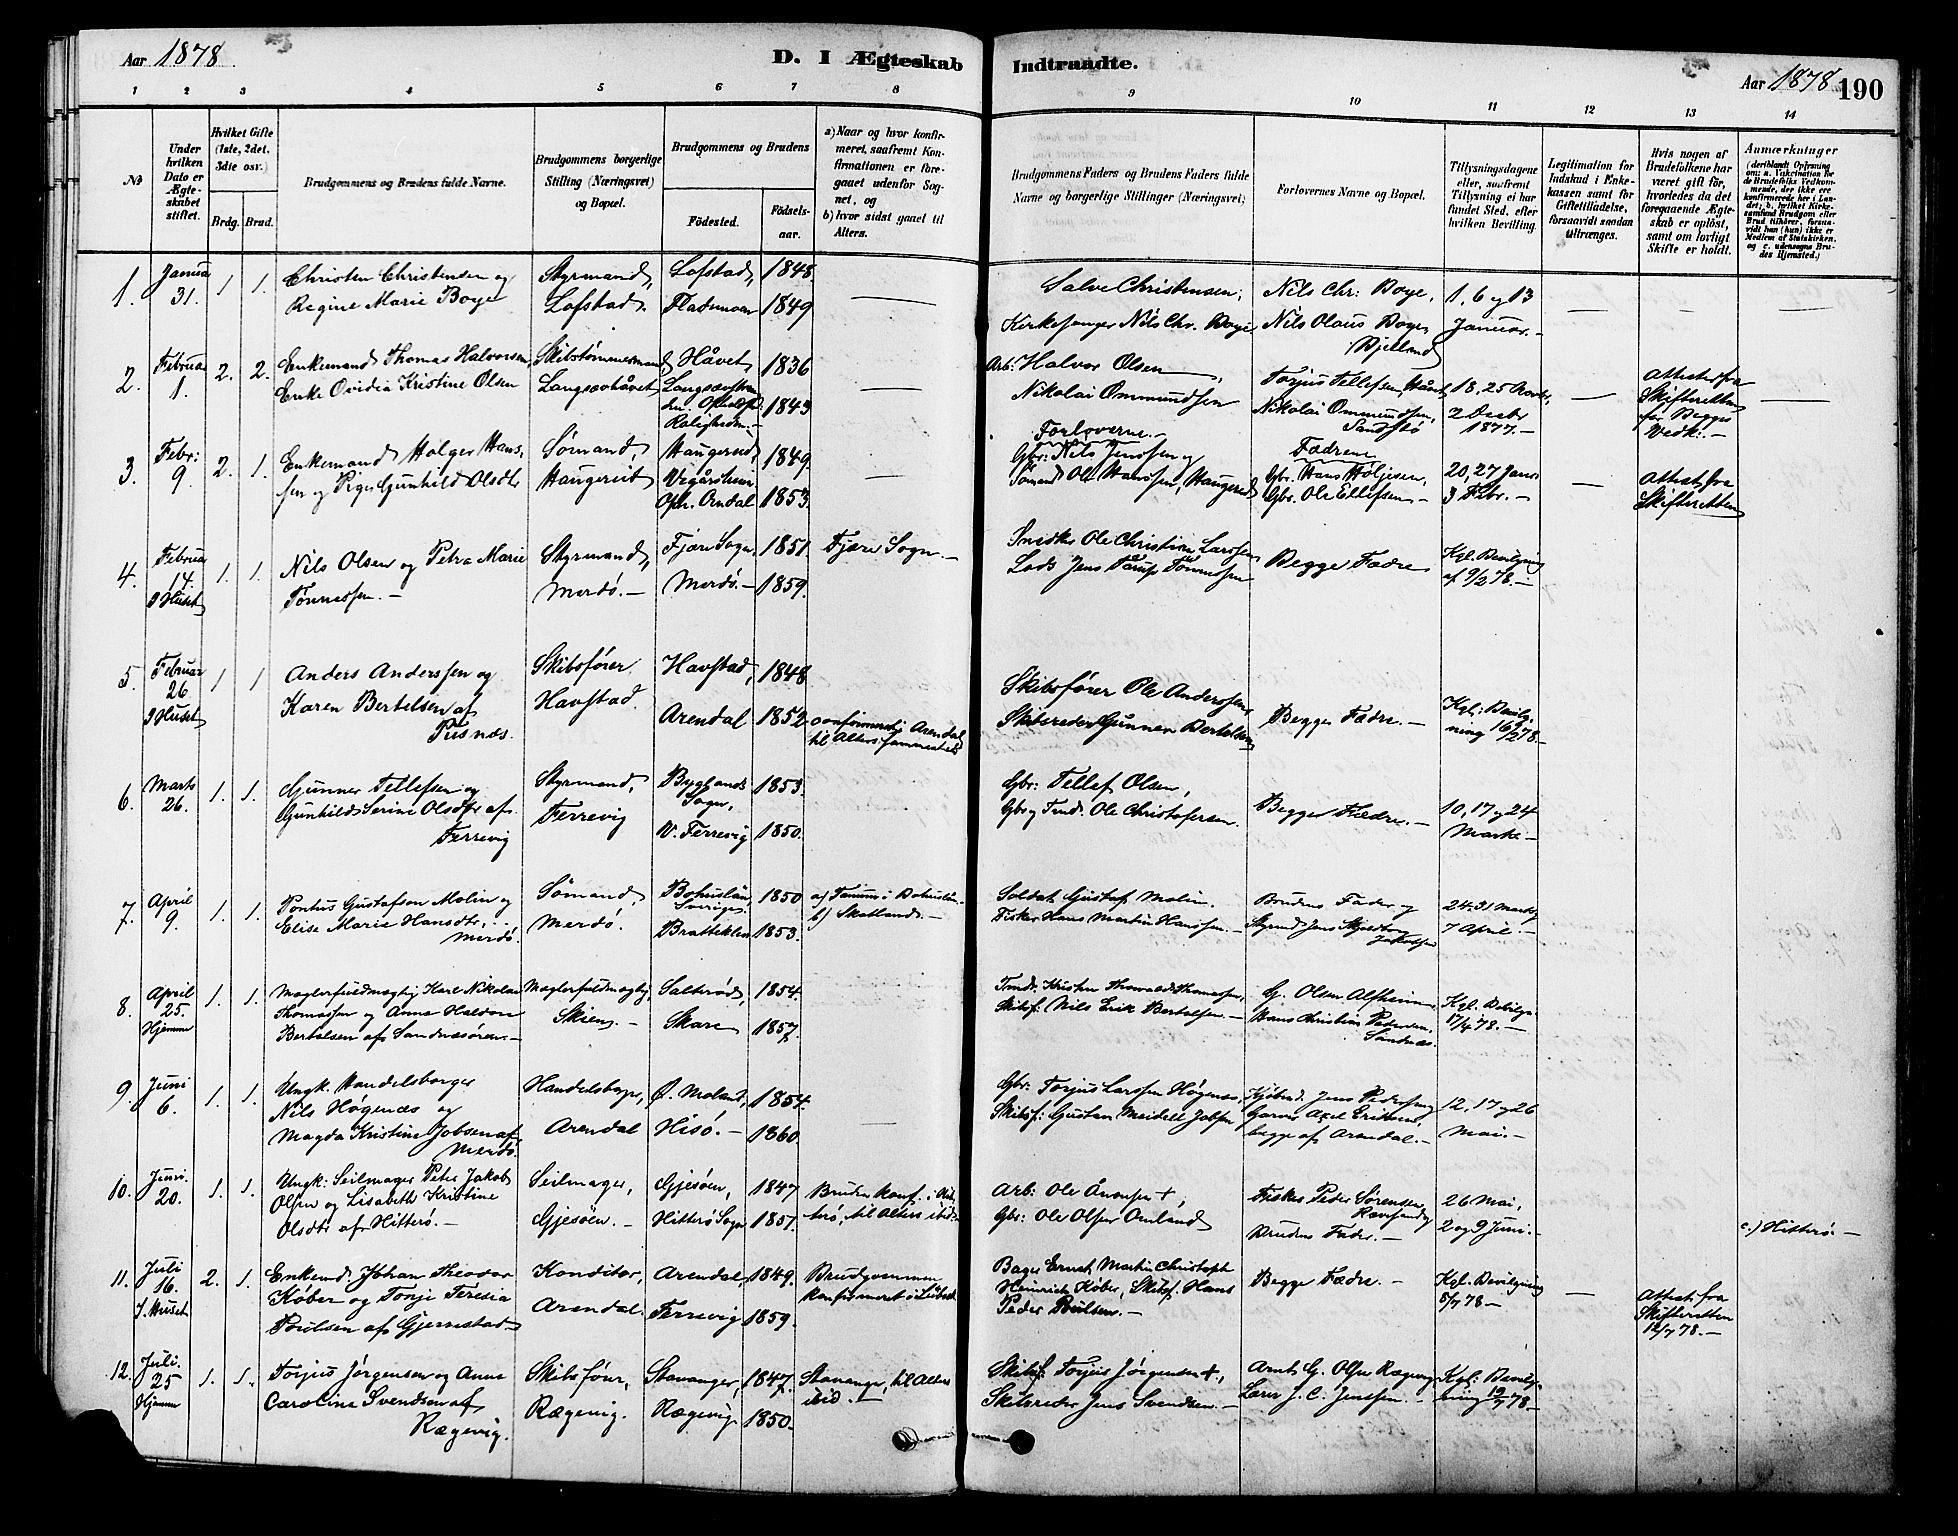 Aar 1878.
D. I Ægteskab Indtraadte.
Aar 1878
190
1 2 3 4 5 6 7 8 9 10 11 12 13 14
No
Under hvilken Dato er Ægteskabet stiftet.
Hvilket Gifte (1ste, 2det, 3die osv.)
Brdg. Brud.
Brudgommens og Brudens fulde Navne.
Brudgommens borgerlige Stilling (Næringsvei) og Bopæl.
Brudgommens og Brudens
Fødested.
Fødselsaar.
a) Naar og hvor konfirmeret, saafremt Konfirmationen er foregaaet udenfor Sognet, og
b) hvor sidst gaaet til Alters.
Brudgommens Faders og Brudens Faders fulde Navne og borgerlige Stillinger (Næringsvei)
Forlovernes Navne og Bopæl.
Tillysningsdagene eller, saafremt Tillysning ei har fundet Sted, efter hvilken Bevilling.
Legitimation for Indskud i Enkekassen samt for Giftetilladelse, forsaavidt saadan udtrænges.
Hvis nogen af Brudefolkene har været gift før, hvorledes da det foregaaende Ægteskab er opløst, samt om lovligt Skifte er holdt.
Anmærkninger
(deriblandt Oplysning om: a. Vaccination for de Brudefolks Vedkommende, der ikke ere konfirmerede her i Landet; b. hvilket Kirkesamfund Brudgom eller Brud tilhører, forsaavidt han (hun) ikke er Medlem af Statskirken, og c. udensogns Brudes Hjemsted.)
1. Januar 31. 1 1. Christen Christensen og Regine Marie Boye
Styrmand, Lofstad.
Lofstad, 1848.
Flademoen 1849
Salve Christensen,
Kirkesanger Nils Chr. Boye
Nils Chr: Boye,
Nils Olaus Boye, Bjelland
1, 6 og 13 Januar.
2. Februar 1. 2. 2. Enkemand Thomas Halvorsen,
Enke Ovidia Kristine Olsen
Skibstømmermand Langsævhåvet
Håvet 1836
1843
Arb: Halvor Olsen,
Nikolai Ommundsen
Torjus Tellefsen, Håvet
Nikolai Ommundsen, Sandstø
18, 25 Novbr, 2 Decbr 1877.
Attest fra Skifteretten for Begges Vedk:
3. Febr: 9. 2. 1. Enkemand Holger Hanssen og Pige Gunhild Olsdtr
Sømand, Haugerid
Haugerid, 1849.
1853.
Forloverne.
Gbr: Nils Jenssen og
Sømand Ole Hanssen, Haugerid
Fædrene
Gbr. Hans Holjesen,
Gbr. Ole Ellefsen
20, 27 Janr 3 Febr.
Attest fra Skifteretten
4. Februar 14. I Huset 1. 1. Nils Olsen og Petra Marie Tønnessen.
Styrmand, Merdø.
Fjære Sogn, 1851.
Merdø. 1859.
Fjære Sogn.
Smeder Ole Christian Larssen
Lods Jens Tarup Tønnessen
Begge Fædre
Kgl. Bevilgning af 9/2 78.
5. Februar 26 I Huset 1 1 Anders Anderssen og
Karen Bertelsen af Pusnæs.
Skibsfører Havstad.
Havstad, 1848
Arendal 1852
confirmeret i Arendal til Alters sammesteds
Skibsfører Ole Anderssen,
Skibsreder Gunner Bertelsen
Begge Fædre.
Kgl: Bevilgning 16/2 78.
6. Marts 26. 1. 1. Gunner Tellefsen og
Gunhild Serine Olsdtr af Ferrevig
Styrmand, Ferrevig
Byglands Sogn, 1853.
V. Ferrevig 1850.
Gbr: Tellef Olsen,
Gbr og Tmd. Ole Christofersen.
Begge Fædre.
10, 17 og 24 Marts
7. April 9. 1. 1. Pontus Gustafson Molin og
Elise Marie Hansdtr, Merdø.
Sømand, Merdø.
Bohuslän Sverige, 1850
Bratteklev 1853.
a) Tanum i Bohuslän.
b) Skotland.
Soldat Gustaf Molin.
Fisker Hans Martin Hanssen.
Brudens Fader og
Styrmd Jens Skjoldborg Jakobsen
24, 31 Marts, 7 April
8. April 25. Hjemme 1. 1. Mæglerfuldmægtig Karl Nikolai
Thomassen og Anna Haldora
Bertelsen af Sandnæsøren.
Mæglerfuldmægtig, Skien.
Salterød, 1854.
Skare 1857.
Tmd. Kristen Thorvald Thomassen,
Skibsf: Nils Erik Bertelsen.
G. Olsen Alfheim,
Hans Christian Pedersen, Sandnæs.
Kgl. Bevilgn. 17/4 78.
9. Juni 6. 1. 1. Ungk. Handelsborger
Nils Høgenæs og
Magda Kristine Jobsen af Merdø.
Handelsborger, Arendal
Ø. Moland, 1854.
Hisø. 1860.
Gbr: Torjus Larssen Høgenæs,
Skibsf: Gustav Meidell Jobsen
Kjøbmd. Jens Pedersen,
Garver Axel Eriksen,
begge af Arendal.
12, 17 og 26 Mai.
10. Juni. 20. 1. 1. Ungk: Seilmager Peter Jakob
Olsen og Lisabeth Kristine
Olsdtr af Hitterø.
Seilmager, Gjesøen.
Gjesøen, 1847
Hitterø Sogn 1851.
Bruden konf. i Hitterø, til Alters ibid.
Arb: Ole Ånonsen +,
Gbr: Ole Olsen Omland
Fisker Peder Sørensen Rævesand
Brudens Fader.
26 Mai, 2 og 9 Juni.
c.) Hitterø.
11. Juli 16. I Huset 2. 1. Enkemd Johan Theodor
Køber og Tonje Teresia
Poulsen af Gjerrestad
Konditor, Arendal.
Arendal, 1849.
Ferrevig 1859.
Brudgommen konfirmeret i Lübeck
Bager Ernst Martin Christoph
Heinrich Køber, Skibsf. Hans
Peder Poulsen.
Begge Fædre.
Kgl. Bevilgning 5/7 78
Attest fra Skifteretten 12/7 78.
12. Juli. 25 Hjemme 1. 1. Torjus Jørgensen og Anne
Caroline Svendsen af Rægevig.
Skibsfører, Rægevig.
Stavanger, 1847.
Rægevig 1850.
Stavanger, til Alters ibid.
Skibsf. Torjus Jørgensen +,
Skibsreder Jens Svendsen.
Arnt G. Olsen Rægevig
Lærer J. C. Jenssen.
Kgl: Bevilgning 12/7 78.